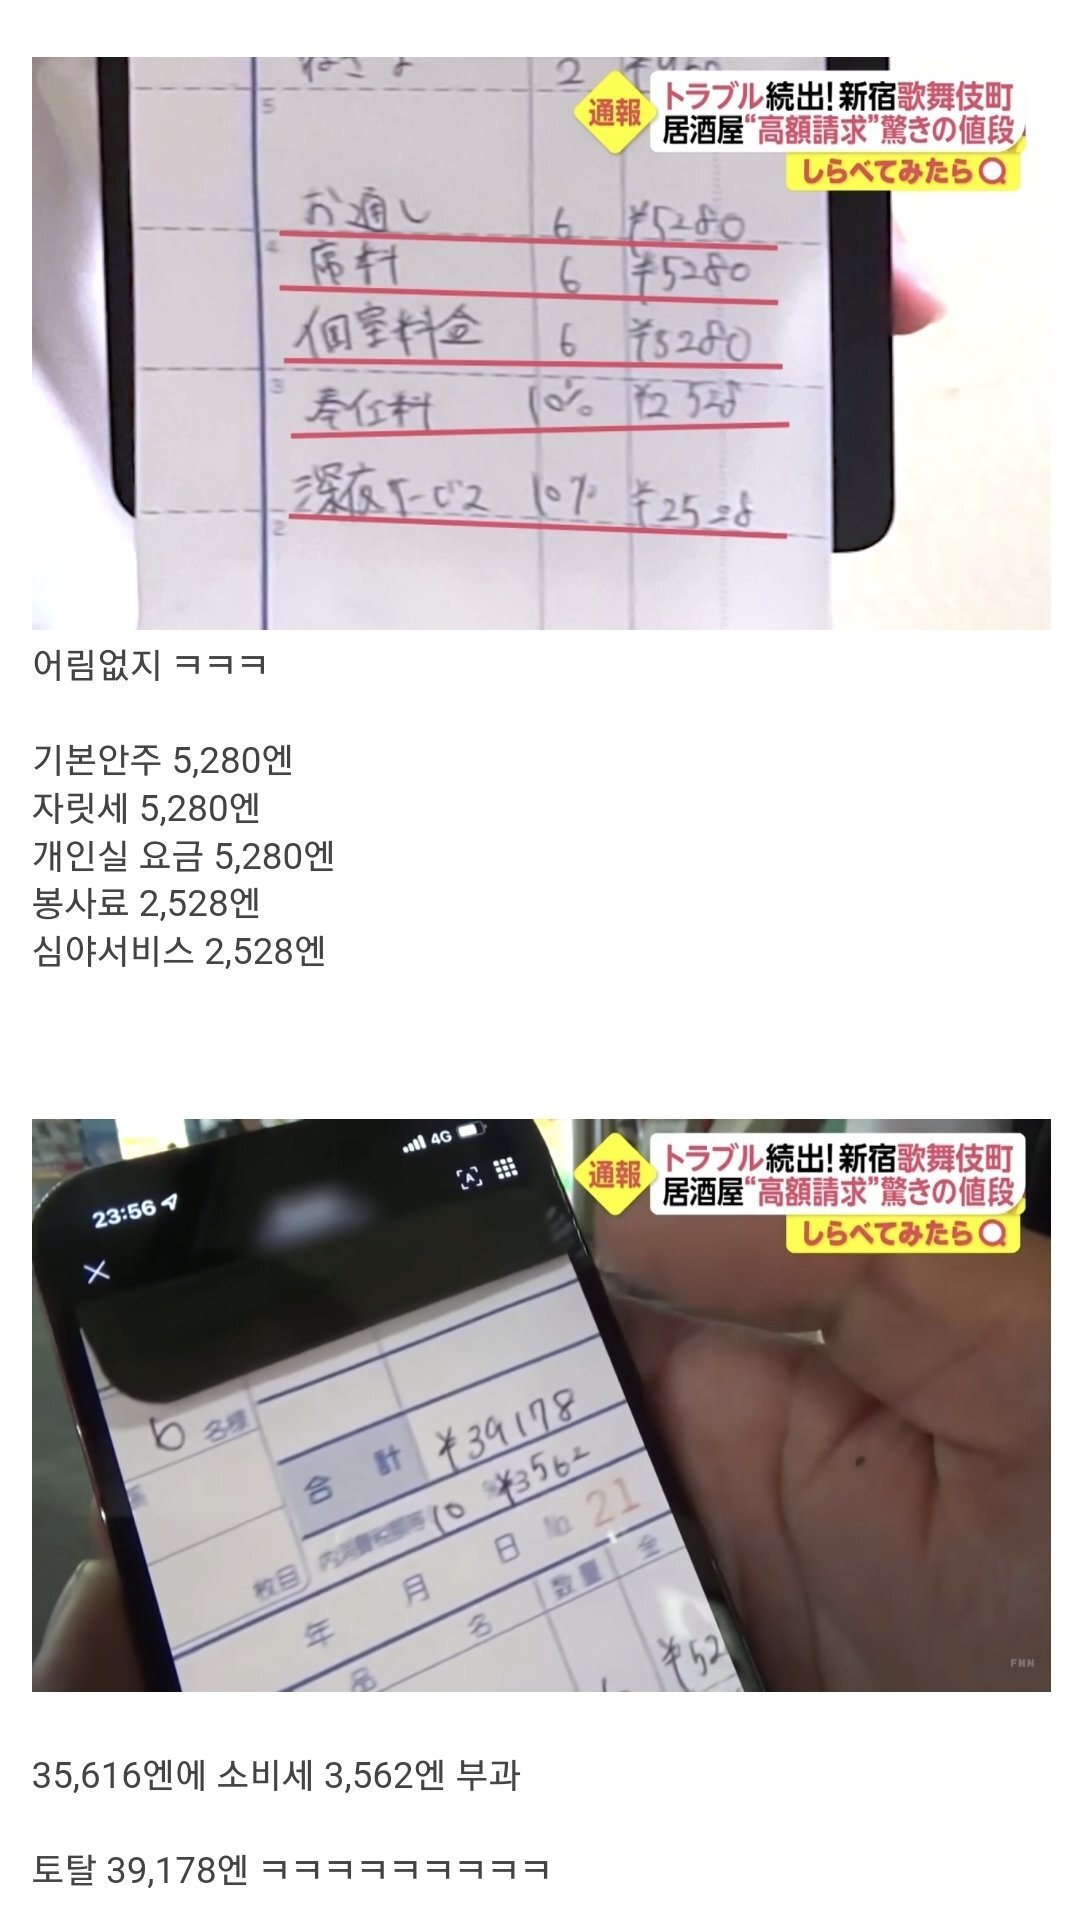 ねぎま 2
5
通報
トラブル続出!新宿歌舞伎町
居酒屋“高額請求”驚きの値段
しらべてみたら
お通し 6 ¥5280
4
席料 6 ¥5280
個室料金 6 ¥5280
3
奉仕料 10% ¥2528
深夜サービス 10% ¥2528
2
어림없지 ㅋㅋㅋ
기본안주 5,280엔
자릿세 5,280엔
개인실 요금 5,280엔
봉사료 2,528엔
심야서비스 2,528엔
4G
23:56
通報
トラブル続出!新宿歌舞伎町
居酒屋“高額請求”驚きの値段
しらべてみたら
6 名様
合計 ¥39178
内消費税額等 10 % ¥3562
枚目
年 月 日 No. 21
品 名 数量 金
¥52
FNN
35,616엔에 소비세 3,562엔 부과
토탈 39,178엔 ㅋㅋㅋㅋㅋㅋㅋㅋㅋ